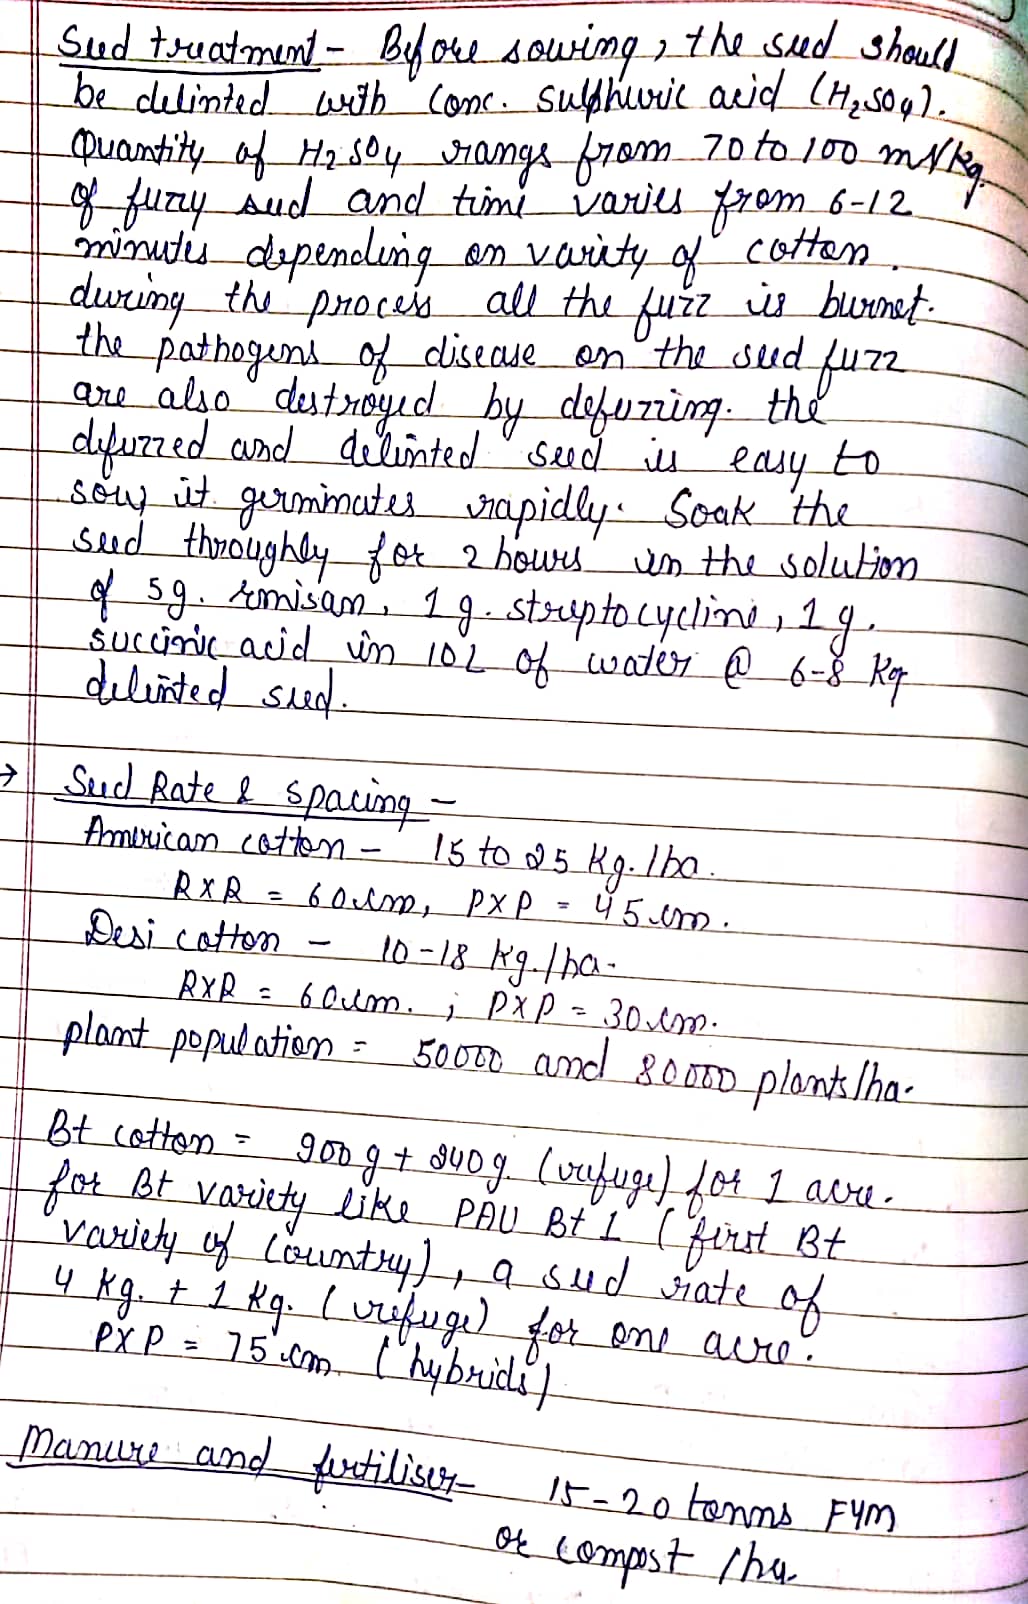 Seed treatment - Before sowing, the seed should
be delinted with conc. sulphuric acid (H₂SO₄).
Quantity of H₂SO₄ rangs from 70 to 100 ml/kg.
of fuzzy seed and time varies from 6-12
minutes depending on variety of cotton.
during the process all the fuzz is burnet.
the pathogens of disease on the seed fuzz
are also destroyed by defuzzing. the
defuzzed and delinted seed is easy to
sow, it germinates rapidly. Soak the
seed throughly for 2 hours in the solution
of 5g. Emisan, 1 g. streptocycline, 1 g.
succinic acid in 10L of water @ 6-8 kg
delinted seed.
→ Seed Rate & spacing -
American cotton - 15 to 25 kg./ha.
RXR = 60cm, PXP = 45cm.
Desi cotton - 10-18 kg./ha.
RXR = 60cm. ; PXP = 30cm.
plant population = 50000 and 80000 plants/ha.
Bt cotton = 900g + 240g. (refuge) for 1 acre.
for Bt variety like PAU Bt 1 (first Bt
variety of country), a seed rate of
4 kg. + 1 kg. (refuge) for one acre.
PXP = 75cm (hybrids)
Manure and fertiliser - 15-20 tonns FYM
or compost /ha.